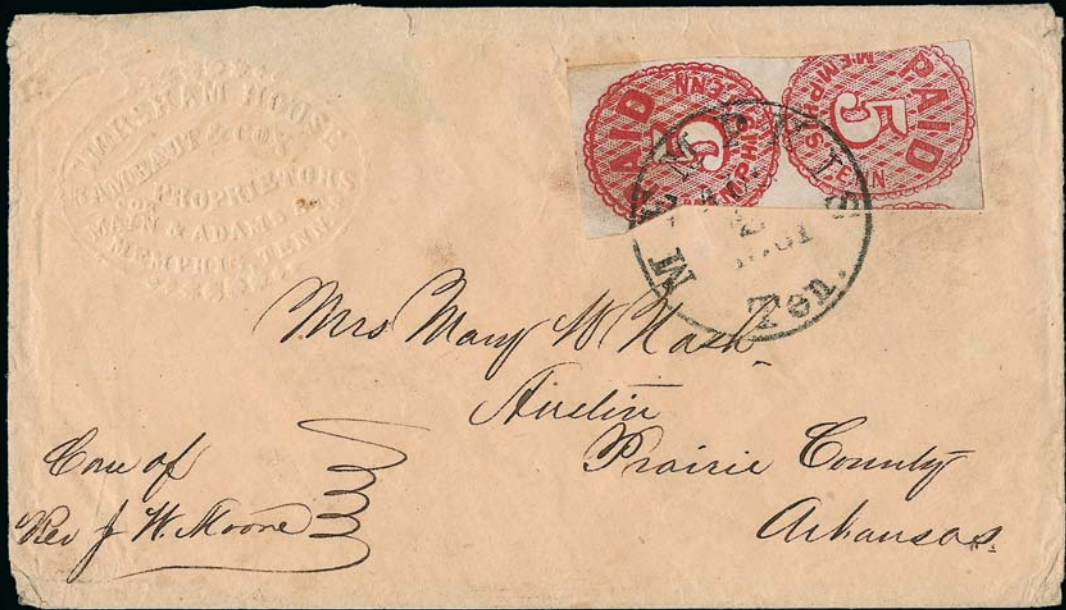 WORSHAM HOUSE
& COX
PROPRIETORS
COR
MAIN & ADAMS STS
MEMPHIS, TENN.
PAID
5
MEMPHIS
TENN
PAID
5
MEMPHIS
TENN
MEMPHIS
1861
Ten.
Mrs Mary W Nash
Austin
Prairie County
Arkansas.
Care of
Rev J W. Moore